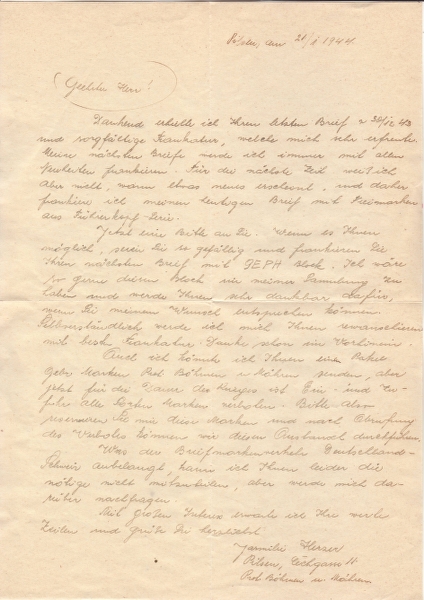 Pilsen, am 21/I 1944.
Geehrter Herr!
Dankend erhielt ich Ihren letzten Brief v 30/12 43
und sorgfältige Frankatur, welche mich sehr erfreute.
Meine nächsten Briefe werde ich immer mit allen
Neuheiten frankieren. Für die nächste Zeit weiß ich
aber nicht, wann etwas neues erscheint, und daher
frankiere ich meinen heutigen Brief mit Marken
aus Führerkopf-Serie.
Jetzt eine Bitte an Sie. Wenn es Ihnen
möglich, seien Sie so gefällig und frankieren Sie
Ihren nächsten Brief mit GEPH Block. Ich wäre
so gerne diesen Block in meiner Sammlung zu
haben und werde Ihnen sehr dankbar dafür,
wenn Sie meinem Wunsch entsprechen können.
Selbverständlich werde ich mich Ihnen revanchieren
mit Frankatur. Danke schon im Vorhinein.
Auch ich könnte ich Ihnen eine Paket
Marken Prot Böhmen u Mähren senden, aber
jetzt für die Dauer des Krieges ist Ein- und Zu-
fuhr aller Marken verboten. Bitte also
reservieren Sie mir diese Marken und nach
des Verbotes können wir diesen Austausch durchführen.
Was der Briefmarkenverkehr Deutschland-
Schweiz anbelangt, kann ich Ihnen leider die
nötige nicht mitzuteilen, aber werde mich da-
rüber nachfragen.
Mit großem Interesse erwarte ich Ihre werte
Zeilen und grüße Sie herzlichst
Jarmila
Pilsen, 11
Prot Böhmen u. Mähren